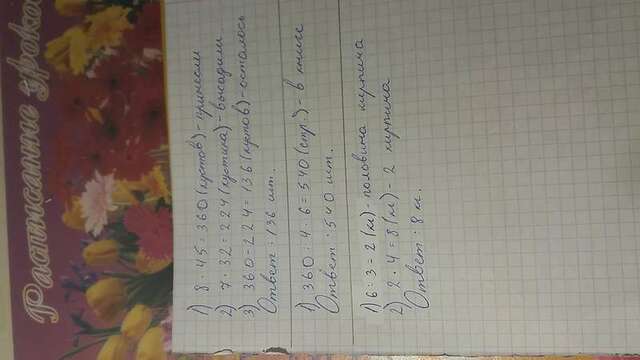 Расписание уроков
1) 8 · 45 = 360 (кустов) - принесли
2) 7 · 32 = 224 (кустика) - высадили
3) 360 - 224 = 136 (кустов) - осталось
Ответ : 136 шт.
1) 360 : 4 · 6 = 540 (стр.) - в книге
Ответ : 540 шт.
1) 6 : 3 = 2 (кг) - половина кирпича
2) 2 · 4 = 8 (кг) - 2 кирпича
Ответ : 8 кг.